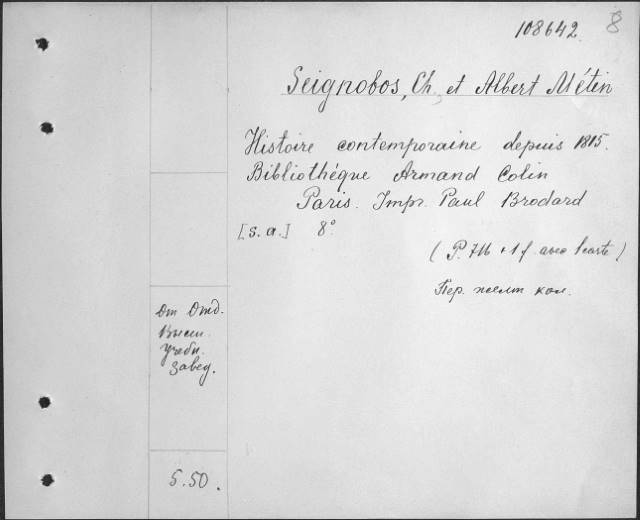 108642. 8
Seignobos, Ch. et Albert Métin
Histoire contemporaine depuis 1815.
Bibliothéque Armand Colin
Paris. Impr. Paul Brodard
[s. a.] 8°
(P. 716 + 1 f. avec 1 carte)
Пер. желт кол.
От Отд.
Высш.
учебн.
завед.
5.50.